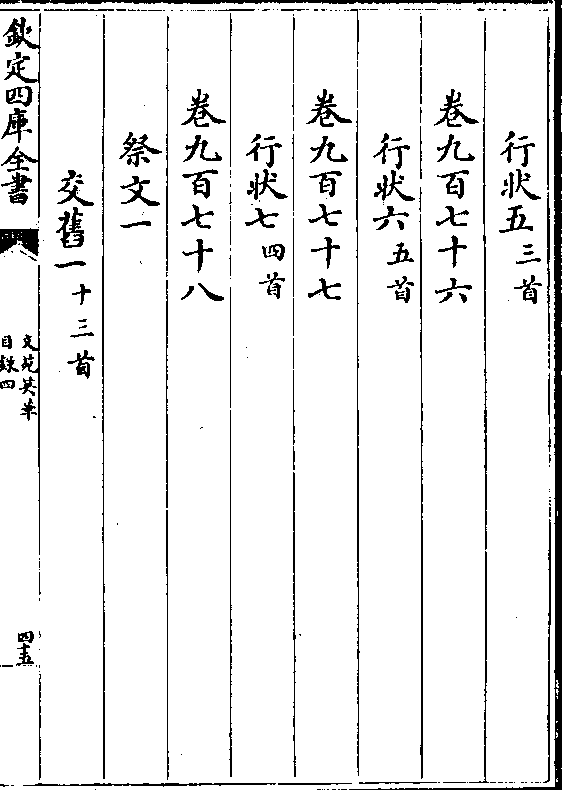 行狀五三首
卷九百七十六
行狀六五首
卷九百七十七
行狀七四首
卷九百七十八
祭文一
交舊一十三首
欽定四庫全書
文苑英華
目錄四
四十五